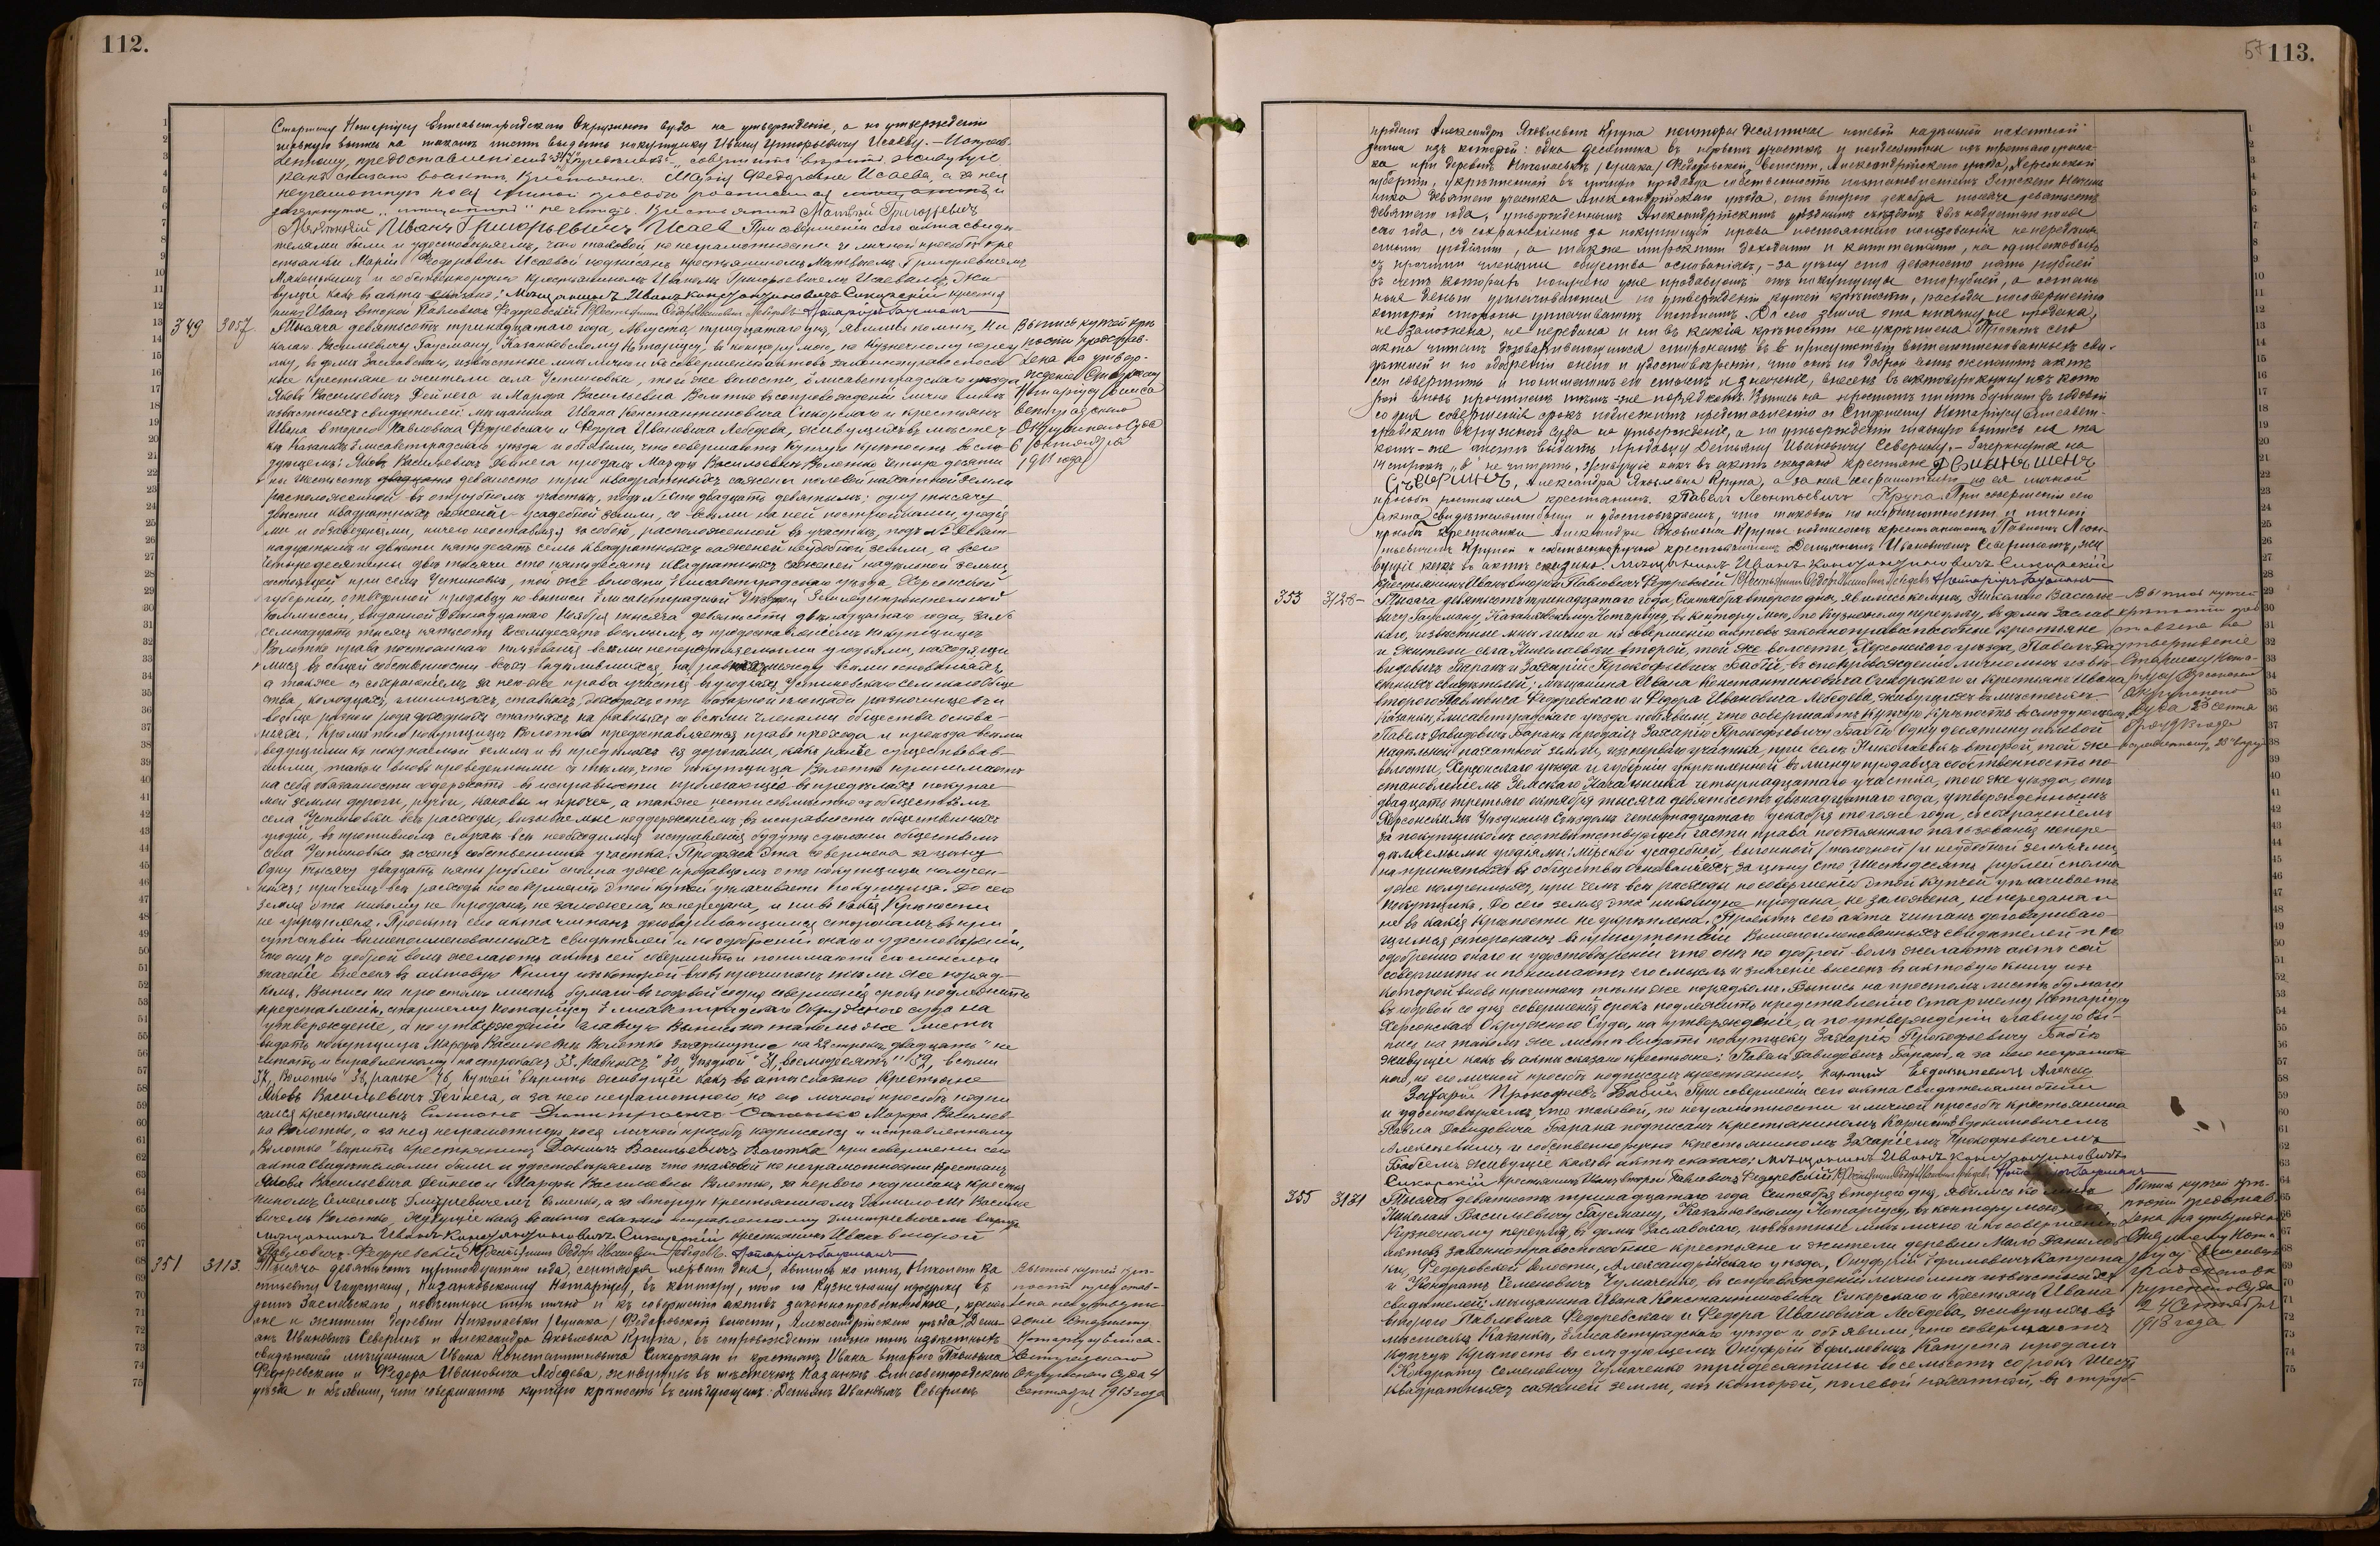 112.
Старшему Нотаріусу Елисаветградскаго Окружнаго Суда на утвержденіе, а по утвержденіи
главную выпись на таковомъ листѣ выдать покупщику Ивану Григорьевичу Исаеву.
крестьяне: Марія Федоровна Исаева, а за нея
неграмотную по ея личной просьбѣ
Крестьянинъ Матвѣй Григорьевичъ
Иванъ Григорьевичъ Исаевъ При совершеніи сего акта свидѣ-
телями были и удостовѣряемъ, что таковой по неграмотности и личной просьбѣ кре-
стьянки Маріи Федоровны Исаевой подписанъ крестьяниномъ Матвѣемъ Григорьевичемъ
и собственноручно крестьяниномъ Иваномъ Григорьевичемъ Исаевымъ, жи-
вущіе какъ въ актѣ сказано: Мѣщанинъ Иванъ Константиновичъ Сикорскій крестья-
нинъ Иванъ второй Павловичъ Федоревскій Крестьянинъ Федоръ Ивановичъ Лебедевъ. Нотаріусъ Гаусманъ
349 3057 Тысяча девятьсотъ тринадцатаго года, Августа тридцатаго дня, явились ко мнѣ, Ни
колаю Васильевичу Гаусману, Казанковскому Нотаріусу, въ контору мою, по Кузнечному переу
лку, въ домѣ Заславскаго, извѣстные мнѣ лично и къ совершенію актовъ законноправоспособ
ные крестьяне и жители села Устиновки, той же волости, Елисаветградскаго уѣзда
Яковъ Васильевичъ Дейнега и Марфа Васильевна Волотко въ сопровожденіи лично мнѣ
извѣстныхъ свидѣтелей: мѣщанина Ивана Константиновича Сикорскаго и крестьянъ
Ивана второго Павловича Федоревскаго и Федора Ивановича Лебедева, живущихъ въ мѣстеч
кѣ Казанкѣ Елисаветградскаго уѣзда и объявили, что совершаютъ Купчую крѣпость въ слѣ
дующемъ: Яковъ Васильевичъ Дейнега продалъ Марфѣ Васильевнѣ Волотко четыре десяти
ны шестьсотъ девяносто три квадратныхъ сажени полевой пахатной земли
расположенной въ отрубномъ участкѣ, подъ № сто двадцать девятымъ; одну тысячу
двѣсти квадратныхъ саженей усадебной земли, со всѣми на ней постройками, угодія
ми и обзаведеніями, ничего не оставляя за собою, расположенной въ участкѣ, подъ № девят-
надцатымъ и двѣсти пятьдесятъ семь квадратныхъ саженей неудобной земли, а всего
четыре десятины двѣ тысячи сто пятьдесятъ квадратныхъ саженей надѣльной земли,
состоящей при селѣ Устиновкѣ, той же волости Елисаветградскаго уѣзда, Херсонской
губерніи, отведенной продавцу по выписи Елисаветградской Уѣздной Землеустроительной
Коммиссіи, выданной двѣнадцатаго Ноября тысяча девятьсотъ двѣнадцатаго года, за №
семнадцать тысячъ пятьсотъ восемьдесятъ восьмымъ, съ предоставленіемъ покупщицѣ
Волотко права постояннаго пользованія всѣми непередѣляемыми угодьями, находящи
мися въ общей собственности всѣхъ выдѣлившихся, на равныхъ между всѣми основаніяхъ,
а также съ сохраненіемъ за нею же права участія въ угодіяхъ Устиновскаго сельскаго обще
ства, колодцахъ, мельницахъ, ставкахъ, доходахъ отъ базарной площади
вообще разнаго рода доходныхъ статьяхъ на равныхъ со всѣми членами общества основа-
ніяхъ. Кромѣ того покупщицѣ Волотко предоставляется право прохода и проѣзда всѣми
ведущими къ покупаемой землѣ и въ предѣлахъ ея дорогами, какъ ранѣе существовав-
шими, такъ и вновь проведенными съ тѣмъ, что покупщица Волотко принимаетъ
на себя обязанности содержать въ исправности пролегающія въ предѣлахъ покупае-
мой земли дороги, рвы, канавы и прочее, а также нести совмѣстно съ обществомъ
села Устиновки всѣ расходы, вызываемые поддержаніемъ въ исправности общественныхъ
угодій, въ противномъ случаѣ всѣ необходимыя исправленія будутъ сдѣланы обществомъ
села Устиновки за счетъ собственника участка. Продажа эта совершена за цѣну
Одну тысячу двадцать пять рублей сполна уже продавцомъ отъ покупщицы получен-
ныхъ; причемъ всѣ расходы по совершенію этой купчей уплачиваетъ покупщица. До сего
земля эта никому не продана, не заложена, не передана, и ни въ какія Крѣпости
не укрѣплена. Проектъ сего акта читанъ договаривающимся сторонамъ въ при
сутствіи вышепоименованныхъ свидѣтелей и по одобреніи онаго и удостовѣреніи,
что они по доброй волѣ желаютъ актъ сей совершить и понимаютъ его смыслъ и
значеніе внесенъ въ актовую Книгу изъ которой вновь прочитанъ тѣмъ же поряд-
комъ. Выпись на простомъ листѣ бумаги въ годовой со дня совершенія срокъ подлежитъ
представленію, старшему Нотаріусу Елисаветградскаго Окружного суда на
утвержденіе, а по утвержденіи главную Выпись на таковомъ же листѣ
выдать покупщицѣ Марфѣ Васильевнѣ Волотко зачеркнутое на 23 строкѣ "двадцать" не
читать, и исправленному на строкахъ
37, "Волотко" 38, "ранѣе" 46, Купчей" вѣрить живущіе какъ въ актѣ сказано Крестьяне
Яковъ Васильевичъ Дейнега, а за него неграмотнаго, по его личной просьбѣ подпи
сался крестьянинъ Симіонъ Дмитріевичъ Марфа Васильев-
на Волотко, а за нея неграмотную по ея личной просьбѣ подписался и исправленному
"Волотко" вѣрить крестьянинъ Данилъ Васильевичъ Волотко при совершеніи сего
акта Свидѣтелями были и удостовѣряемъ что таковой по неграмотности Крестьянъ
Якова Васильевича Дейнеги и Марфы Васильевны Волотко, за перваго подписанъ крестья
ниномъ Семеномъ Дмитріевичемъ а за вторую крестьяниномъ Даниломъ Василье
вичемъ Волотко, живущіе какъ въ актѣ сказано исправленному Дмитріевичемъ вѣрить
мѣщанинъ Иванъ Константиновичъ Сикорскій крестьянинъ Иванъ второй
Павловичъ Федоревскій Крестьянинъ Федоръ Ивановичъ Лебедевъ. Нотаріусъ Гаусманъ
351 3113. Тысяча девятьсотъ тринадцатаго года, сентября перваго дня, явились ко мнѣ, Николаю Ва
сильевичу Гаусману, Казанковскому Нотаріусу, въ контору, мою по Кузнечному переулку въ
домѣ Заславскаго, извѣстные мнѣ лично и къ совершенію актовъ законноправоспособные, кресть-
яне и жители деревни Николаевки /Гулака/ Федоровской волости, Александрійскаго уѣзда, Демь-
янъ Ивановичъ Северинъ и Александра Яковлевна Крупа, въ сопровожденіи лично мнѣ извѣстныхъ
свидѣтелей мѣщанина Ивана Константиновича Сикорскаго и крестьянъ Ивана второго Павловича
Федоревскаго и Федора Ивановича Лебедева, живущихъ въ мѣстечкѣ Казанкѣ Елисаветградскаго
уѣзда и объявили, что совершаютъ купчую крѣпость въ слѣдующемъ: Демьянъ Ивановичъ Северинъ
Выпись купчей крѣ
пости представ-
лена на утвер-
жденіе Старшему
Нотаріусу Елиса
ветградскаго
Окружнаго Суда
6 октября
Выпись купчей крѣ-
пости представ-
лена на утверж-
деніе Старшему
Нотаріусу Елиса-
ветградскаго
Окружнаго Суда 4
Сентября 1913 года
57 113.
продалъ Александрѣ Яковлевнѣ Крупа полторы десятины полевой надѣльной пахатной
земли изъ которой: одна десятина въ первомъ участкѣ и полдесятины изъ третьяго участ-
ка при деревнѣ Николаевкѣ /Гулака/ Федоровской, волости, Александрійскаго уѣзда, Херсонской
губерніи, укрѣпленной въ личную продавца собственность постановленіемъ Земскаго Началь
ника девятаго участка Александрійскаго уѣзда, отъ второго декабря тысяча девятьсотъ
девятаго года, утвержденнымъ Александрійскимъ уѣзднымъ съѣздомъ
сего года, съ сохраненіемъ за покупщицей права постояннаго пользованія непередѣля-
емыми угодіями, а также мірскими доходами и капиталами, на одинаковыхъ
съ прочими членами общества основаніяхъ, - за цѣну сто девяносто пять рублей
въ счетъ которыхъ получено уже продавцомъ отъ покупщицы сто рублей, а осталь
ныя деньги уплачиваются по утвержденіи купчей крѣпости, расходы по совершенію
которой стороны уплачиваютъ пополамъ. До сего земля эта никому не продана,
не заложена, не передана и ни въ какія крѣпости не укрѣплена. Проектъ сего
акта читанъ договаривающимся сторонамъ въ присутствіи вышепоименованныхъ сви-
дѣтелей и по одобреніи онаго и удостовѣреніи, что они по доброй волѣ желаютъ актъ
сей совершить и понимаютъ его смыслъ и значеніе, внесенъ въ актовую книгу изъ кото
рой вновь прочитанъ тѣмъ-же порядкомъ. Выпись на простомъ листѣ бумаги въ годовой
со дня совершенія срокъ подлежитъ представленію Старшему Нотаріусу Елисавет-
градскаго Окружнаго Суда на утвержденіе, а по утвержденіи главную выпись на та
комъ-же листѣ выдать продавцу Демьяну Ивановичу Северину. Зачеркнутое на
14 строкѣ "в" не читать, живущіе какъ въ актѣ сказано крестьяне
Северинъ, Александра Яковлевна Крупа, а за нея неграмотную по ея личной
просьбѣ росписался крестьянинъ Павелъ Леонтьевичъ Крупа. При совершеніи сего
акта свидѣтелями были и удостовѣряемъ, что таковой по неграмотности и личной
просьбѣ крестьянки Александры Яковлевны Крупы подписанъ крестьяниномъ Павломъ Леон-
тьевичемъ Крупой и собственноручно крестьяниномъ Демьяномъ Ивановичемъ Севериномъ, жи
вущіе какъ въ актѣ сказано. Мѣщанинъ Иванъ Константиновичъ Сикорскій
Крестьянинъ Иванъ второй Павловичъ Федоревскій Крестьянинъ Федоръ Ивановичъ Лебедевъ Нотаріусъ Гаусманъ
353 3128- Тысяча девятьсотъ тринадцатаго года, Сентября второго дня, явились ко мнѣ, Николаю Василье-
вичу Гаусману, Казанковскому Нотаріусу, въ контору мою, по Кузнечному переулку, въ домѣ Заслав
скаго, извѣстные мнѣ лично и къ совершенію актовъ законноправоспособные крестьяне
и жители села Николаевки второй, той же волости, Херсонскаго уѣзда, Павелъ Да
видовичъ Баранъ и Захарій Прокофьевичъ Бабій, въ сопровожденіи лично мнѣ извѣ
стныхъ свидѣтелей: мѣщанина Ивана Константиновича Сикорскаго и крестьянъ Ивана
второго Павловича Федоревскаго и Федора Ивановича Лебедева, живущихъ въ мѣстечкѣ
Казанкѣ, Елисаветградскаго уѣзда и объявили, что совершаютъ Купчую Крѣпость въ слѣдующемъ
Павелъ Давидовичъ Баранъ продалъ Захарію Прокофьевичу Бабію Одну десятину полевой
надѣльной пахатной земли, изъ перваго участка, при селѣ Николаевкѣ второй, той же
волости, Херсонскаго уѣзда и губерніи укрѣпленной въ личную продавца собственность по
становленіемъ Земскаго Начальника четырнадцатаго участка, того же уѣзда, отъ
двадцать третьяго октября тысяча девятьсотъ двѣнадцатаго года, утвержденнымъ
Херсонскимъ Уѣзднымъ Съѣздомъ четырнадцатаго декабря того же года, съ сохраненіемъ
за покупщикомъ соотвѣтствующей части права постояннаго пользованія непере-
дѣляемыми угодіями: мірской усадебной, выгонной /толочной/ и неудобной землями,
на принятыхъ въ обществѣ основаніяхъ, за цѣну сто шестьдесятъ рублей сполна
уже полученныхъ, при чемъ всѣ расходы по совершенію этой Купчей уплачиваетъ
покупщикъ. До сего земля эта никому не продана, не заложена, не передана и
ни въ какія Крѣпости не укрѣплена. Проектъ сего акта читанъ договариваю-
щимся сторонамъ въ присутствіи Вышепоименованныхъ свидѣтелей и по
одобреніи онаго и удостовѣреніи что они по доброй волѣ желаютъ актъ сей
совершить и понимаютъ его смыслъ и значеніе внесенъ въ актовую книгу изъ
которой вновь прочитанъ тѣмъ же порядкомъ. Выпись на простомъ листѣ бумаги
въ годовой со дня совершенія срокъ подлежитъ представленію Старшему Нотаріусу
Херсонскаго Окружнаго Суда, на утвержденіе, а по утвержденіи главную Вы-
пись на такомъ же листѣ выдать покупщику Захарію Прокофьевичу Бабію
живущіе какъ въ актѣ сказано крестьяне: Павелъ Давидовичъ Баранъ, а за него неграмот
наго, по его личной просьбѣ подписался крестьянинъ
Захарій Прокофьевъ Бабій При совершеніи сего акта Свидѣтелями были
и удостовѣряемъ, что таковой, по неграмотности и личной просьбѣ крестьянина
Павла Давидовича Барана подписанъ крестьяниномъ
и собственноручно крестьяниномъ Захаріемъ Прокофьевичемъ
Бабіемъ живущіе какъ въ актѣ сказано: мѣщанинъ Иванъ Константиновичъ
Сикорскій крестьянинъ Иванъ второй Павловичъ Федоревскій Крестьянинъ Федоръ Ивановичъ Лебедевъ. Нотаріусъ Гаусманъ
355 3131 Тысяча девятьсотъ тринадцатаго года Сентября второго дня, явились ко мнѣ
Николаю Васильевичу Гаусману, Казанковскому Нотаріусу, въ контору мою, по
Кузнечному переулку, въ домѣ Заславскаго, извѣстные мнѣ лично и къ совершенію
актовъ законноправоспособные крестьяне и жители деревни
Федоровской волости, Александрійскаго уѣзда, Онуфрій Ефимовичъ Капуста
и Кондратъ Семеновичъ Чумаченко, въ сопровожденіи лично мнѣ извѣстныхъ
свидѣтелей: мѣщанина Ивана Константиновича Сикорскаго и крестьянъ Ивана
второго Павловича Федоревскаго и Федора Ивановича Лебедева, живущихъ въ
мѣстечкѣ Казанкѣ, Елисаветградскаго уѣзда и объявили, что совершаютъ
купчую Крѣпость въ слѣдующемъ Онуфрій Ефимовичъ Капуста продалъ
Кондрату Семеновичу Чумаченко три десятины восемьсотъ сорокъ шесть
квадратныхъ саженей земли, изъ которой, полевой пахатной, въ отруб-
Выпись купчей
крѣпости пред
ставлена на
утвержденіе
Старшему Нота-
ріусу Херсонскаго
Окружнаго
Суда
Выпись купчей крѣ-
пости представ-
лена на утвержденіе
Старшему Нота
ріусу Елисавет
градскаго Ок
ружнаго Суда
24 Сентября
1913 года